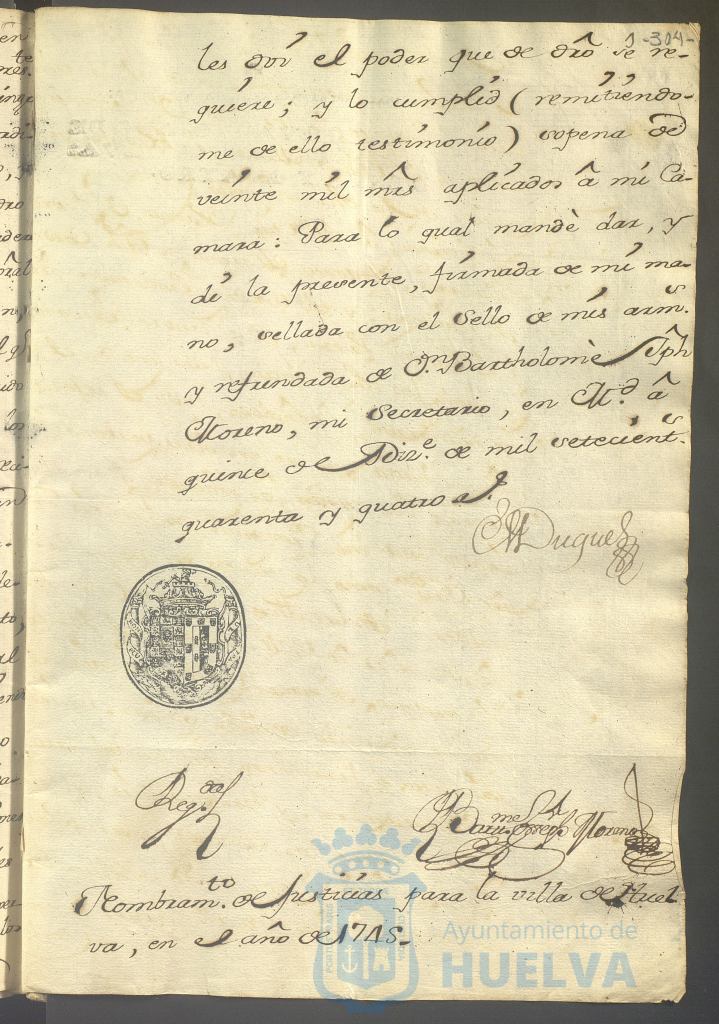 1-304-
les doi el poder que de dro se re-
quiere; y lo cumplid (remitiendo-
me de ello testimonio) sopena de
veinte mil mrs aplicados â mi Ca-
mara: Para lo qual mandè dar, y
dí la presente, firmada de mi ma-
no, sellada con el Sello de mis arm.s
y refrendada de Dn. Bartholomè Jph
Moreno, mi Secretario, en M.d â
quince de Diz.e de mil setecient.s
quarenta y quatro a.s
El Duque
Reg.da
Bar.me Joseph Moreno
Nombram.to de Justicias para la villa de Huel
va, en el año de 1745.
Ayuntamiento de
HUELVA